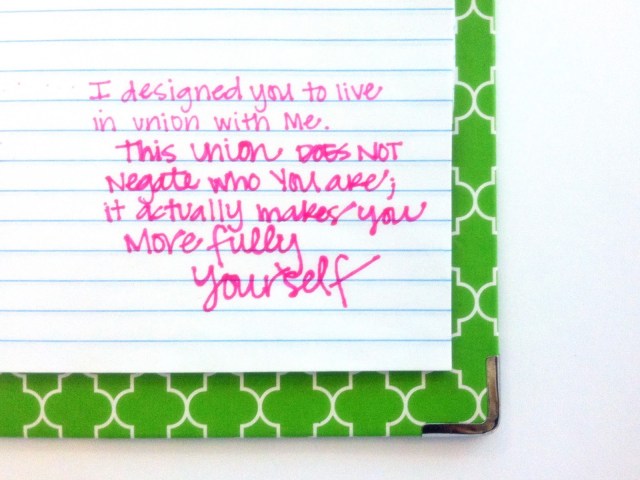 I designed you to live
in union with Me.
This union DOES NOT
Negate who You are;
it actually makes you
More fully
yourself